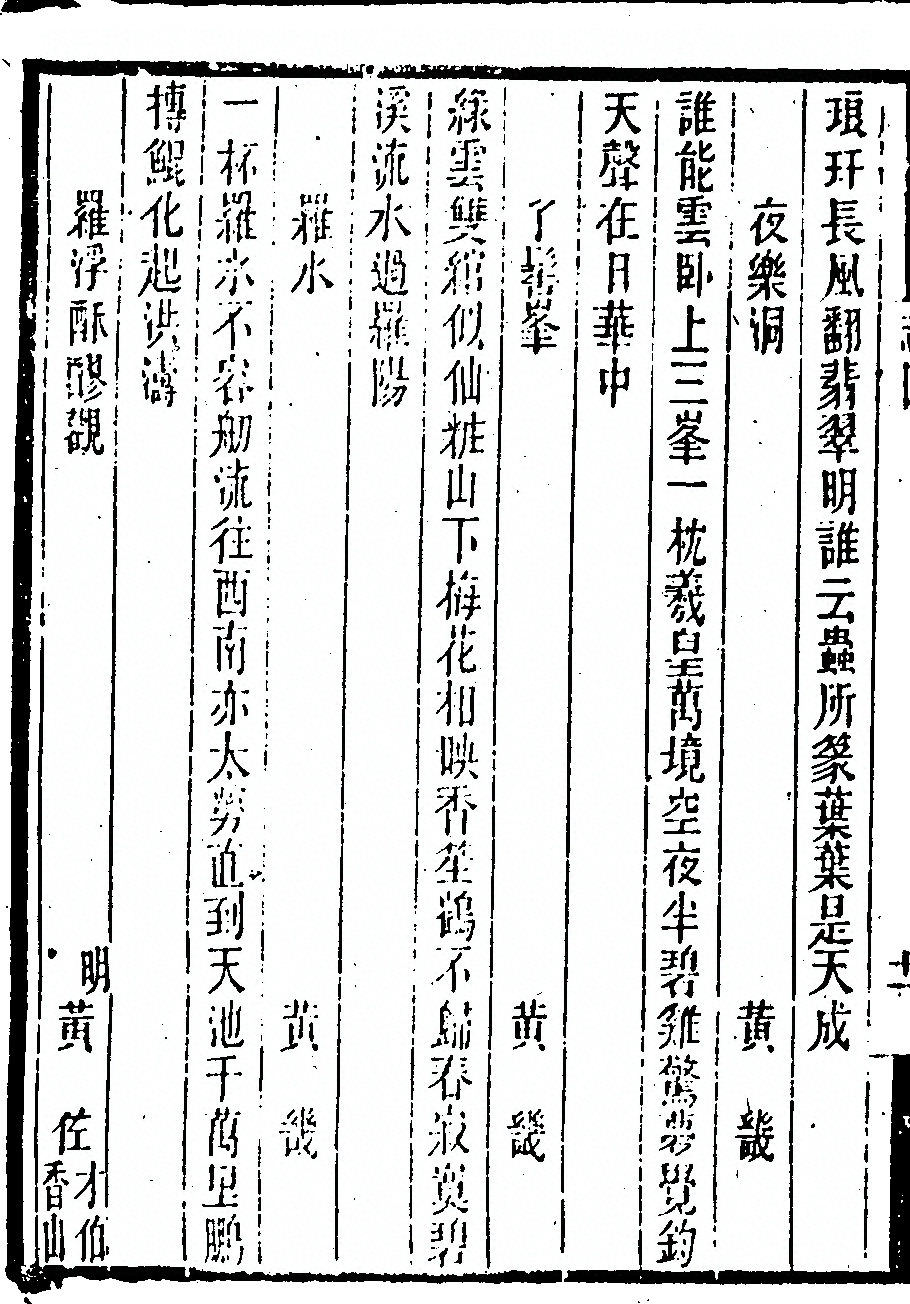 琅玕長風翻翡翠明誰云蟲所篆葉葉是天成
夜樂洞 黃 畿
誰能雲卧上三峯一枕羲皇萬境空夜半碧雞驚夢覺鈞
天聲在日華中
丫髻峯 黃 畿
綠雲雙綰似仙粧山下梅花相映香笙鶴不歸春寂寞碧
溪流水過羅陽
羅水 黃 畿
一杯羅水不容舠流往西南亦太勞直到天池千萬里鵬
摶鯤化起洪濤
羅浮酥醪觀 明黃 佐才伯香山